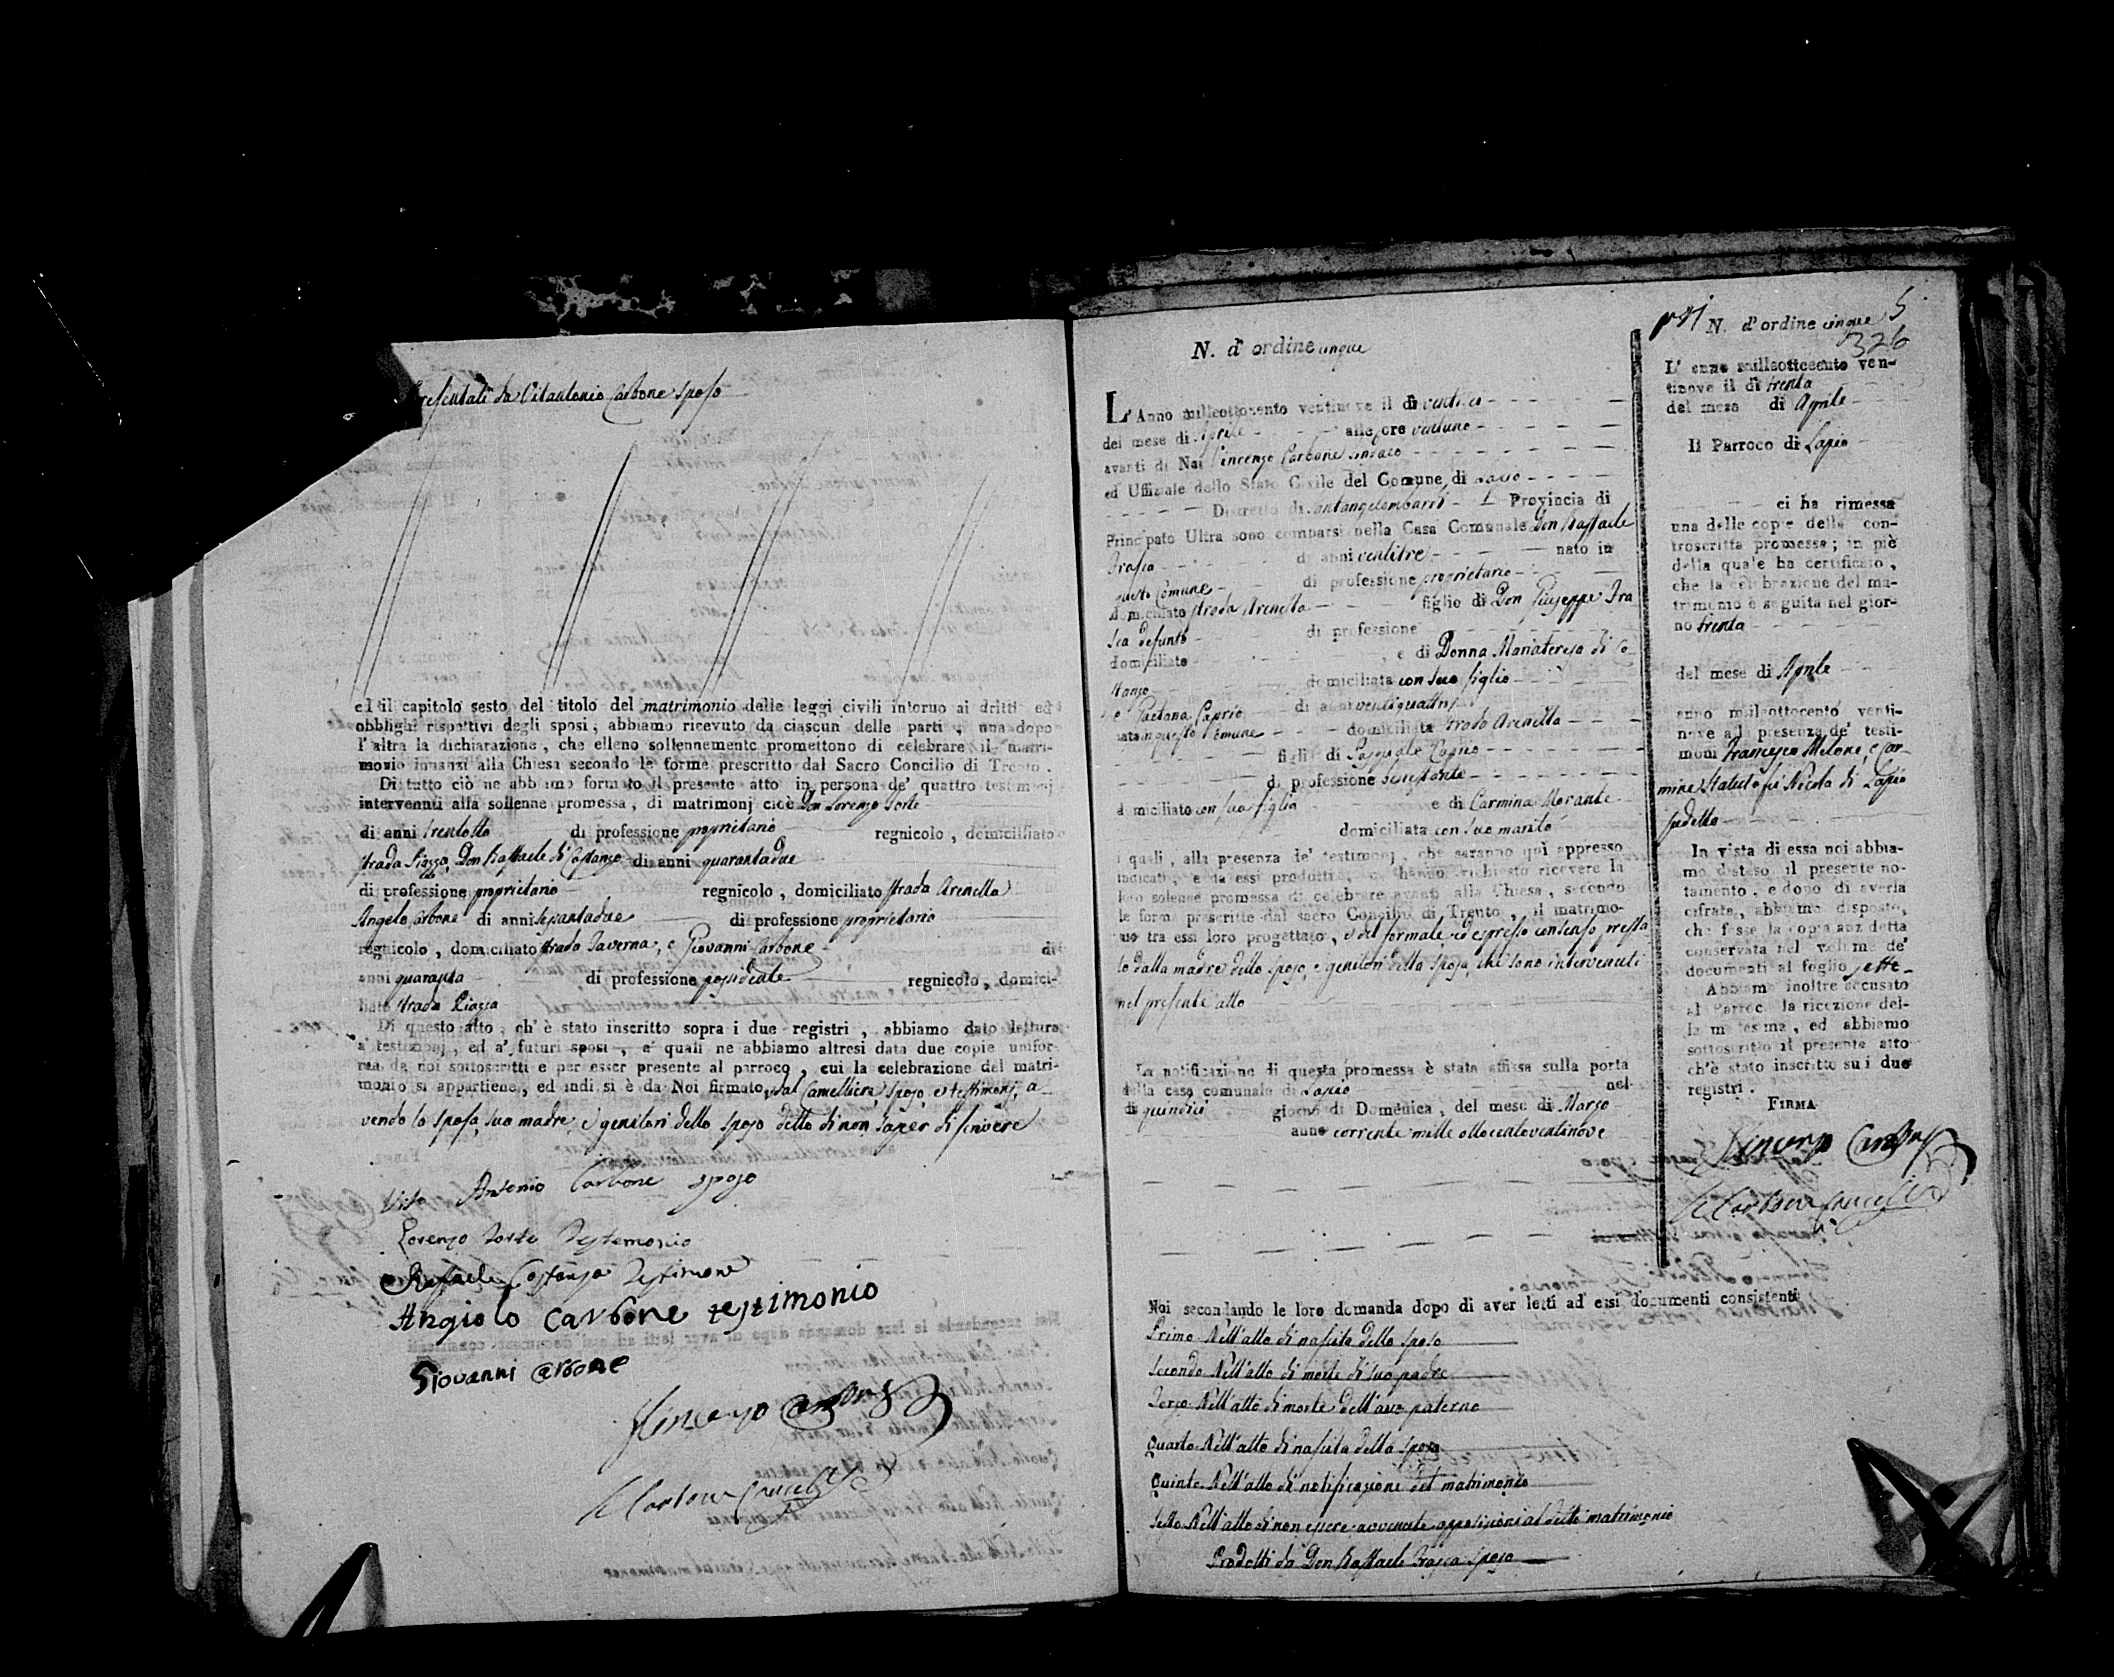 presentati da Vitantonio Carbone sposo
ed il capitolo sesto del titolo del matrimonio delle leggi civili intorno ai dritti ed
obblighi rispettivi degli sposi, abbiamo ricevuto da ciascun delle parti, una dopo
l'altra la dichiarazione, che elleno sollennemente promettono di celebrare il matri-
monio innanzi alla Chiesa secondo le forme prescritto dal Sacro Concilio di Trento.
Di tutto ciò ne abbiamo formato il presente atto in persona de' quattro testimonj
intervenuti alla sollenne promessa, di matrimonj cioè Don Lorenzo Forte
di anni trentotto di professione proprietario regnicolo, domiciliato
strada Piazza, Don Raffaele di Costanzo di anni quarantadue
di professione proprietario regnicolo, domiciliato strada Arenella
Angelo Carbone di anni sessantadue di professione proprietario
regnicolo, domiciliato strada Taverna, e Giovanni Carbone di
anni quaranta di professione possidente regnicolo, domici-
liato strada Piazza
Di questo atto, ch' è stato inscritto sopra i due registri, abbiamo dato lettura
a' testimonj, ed a' futuri sposi, a' quali ne abbiamo altresì data due copie unifor-
ma da noi sottoscritti e per esser presente al parroco, cui la celebrazione del matri-
monio si appartiene, ed indi si è da Noi firmato, dal Cancelliere, sposo, e testimonj, a-
vendo la sposa, sua madre, e genitori dello sposo detto di non saper di scrivere
Vito Antonio Carbone sposo
Lorenzo Forte Testemonio
Rafaele Costanzo Testimone
Angiolo Carbone testimonio
Giovanni Carbone
Vincenzo Carbone
Carbone Cancelliere
N. d' ordine cinque
L'Anno milleottocento ventinove il dì
del mese di Aprile alle ore ventuno
avanti di Noi Vincenzo Carbone Sindaco
ed Uffiziale dello Stato Civile del Comune di Lapio
Distretto di Santangelombardi Provincia di
Principato Ultra sono comparsi nella Casa Comunale Don Raffaele
Frasca di anni ventitre nato in
questo Comune di professione proprietario
domiciliato strada Arenella figlio di Don Giuseppe Fra
sca defunto di professione
domiciliato e di Donna Mariateresa di Co-
stanzo domiciliata con suo figlio
e Gaetana Caprio di anni ventiquattro
nata in questo Comune domiciliata strada Arenella
figlia di Pasquale Caprio
di professione
domiciliato con sua figlia e di Carmina Morante
domiciliata con suo marito
i quali, alla presenza de' testimonj, che saranno quì appresso
indicati, e da essi prodotti, ci hanno richiesto ricevere la
loro solenne promessa di celebrare avanti alla Chiesa, secondo
le forme prescritte dal sacro Concilio di Trento, il matrimo-
nio tra essi loro progettato, e del formale ed espresso consenso presta
to dalla madre dello sposo, e genitori della sposa, che sono intervenuti
nel presente atto
La notificazione di questa promessa è stata affissa sulla porta
della casa comunale di Lapio nel
dì quindici giorno di Domenica, del mese di Marzo
anno corrente mille ottocentoventinove
Noi secondando le loro domanda dopo di aver letti ad essi documenti consistenti
Primo Nell'atto di nascita dello sposo
Secondo Nell'atto di morte di suo padre
Terzo Nell'atto di morte dell'avo paterno
Quarto Nell'atto di nascita della sposa
Quinto Nell'atto di notificazione del matrimonio
Sesto Nell'atto di non essere avvenute opposizioni al detto matrimonio
Prodotti da Don Raffaele Frasca sposo
5
N. d'ordine cinque
326
L' anno milleottocento ven-
tinove il dì trenta
del mese di Aprile
Il Parroco di Lapio
ci ha rimessa
una delle copie della con-
troscritta promessa; in piè
della quale ha certificato,
che la celebrazione del ma-
trimonio è seguita nel gior-
no trenta
del mese di Aprile
anno milleottocento venti-
nove alla presenza de' testi-
moni Francesco Melone, e Car-
mine Statuto fu Nicola di Lapio
sudetto
In vista di essa noi abbia-
mo disteso il presente no-
tamento, e dopo di averla
cifrata, abbiamo disposto,
che fosse la copia anzidetta
conservata nel volume de'
documenti al foglio sette
Abbiamo inoltre accusato
al Parroco la ricezione del-
la medesima, ed abbiamo
sottoscritto il presente atto
ch'è stato inscritto su i due
registri.
FIRMA
Vincenzo Carbone
Carbone Cancelliere